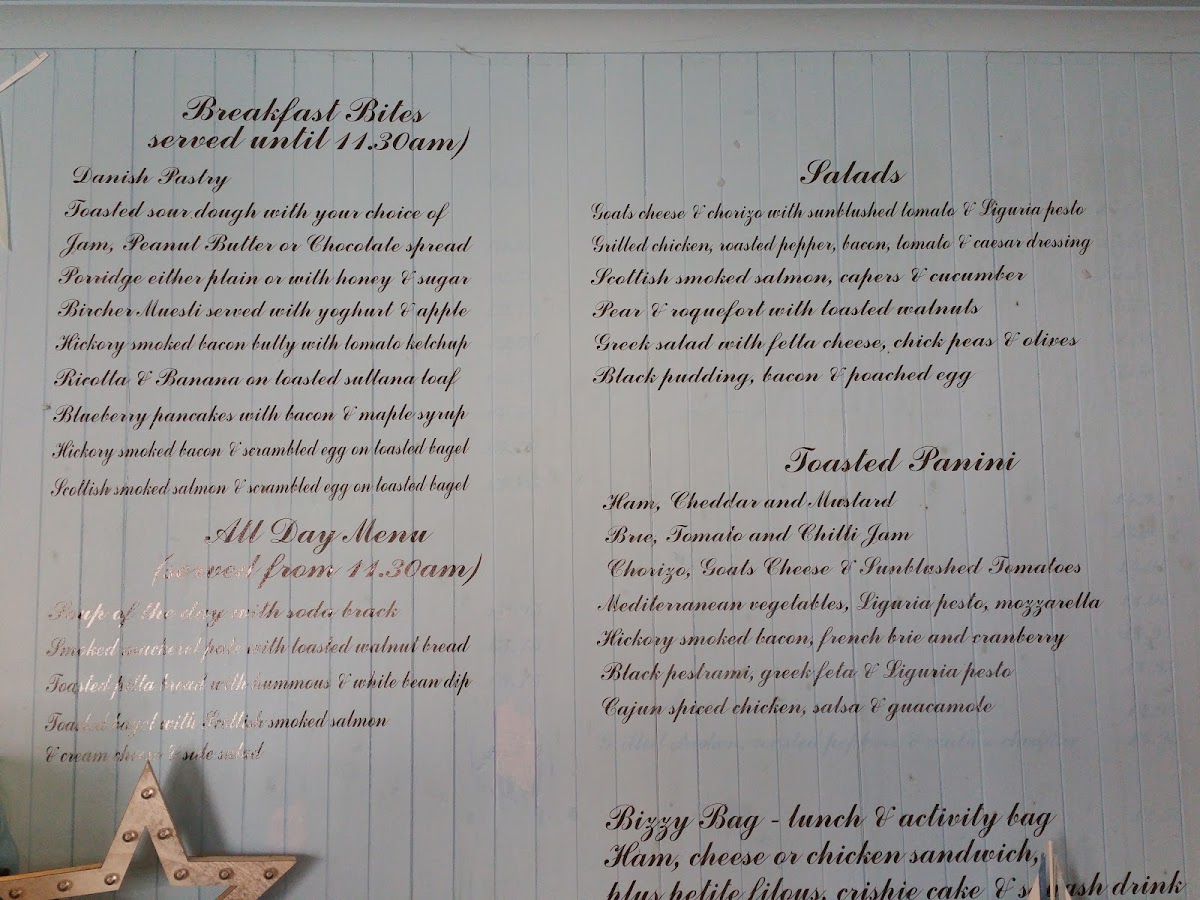 Breakfast Bites
served until 11.30am)
Danish Pastry
Toasted sour dough with your choice of
Jam, Peanut Butter or Chocolate spread
Porridge either plain or with honey & sugar
Bircher Muesli served with yoghurt & apple
Hickory smoked bacon butty with tomato ketchup
Ricotta & Banana on toasted sultana loaf
Blueberry pancakes with bacon & maple syrup
Hickory smoked bacon & scrambled egg on toasted bagel
Scottish smoked salmon & scrambled egg on toasted bagel
All Day Menu
(served from 11.30am)
Soup of the day with soda brack
Smoked mackerel pate with toasted walnut bread
Toasted pitta bread with hummous & white bean dip
Toasted bagel with Scottish smoked salmon
& cream cheese & side salad
Salads
Goats cheese & chorizo with sunblushed tomato & Liguria pesto
Grilled chicken, roasted pepper, bacon, tomato & caesar dressing
Scottish smoked salmon, capers & cucumber
Pear & roquefort with toasted walnuts
Greek salad with fetta cheese, chick peas & olives
Black pudding, bacon & poached egg
Toasted Panini
Ham, Cheddar and Mustard
Brie, Tomato and Chilli Jam
Chorizo, Goats Cheese & Sunblushed Tomatoes
Mediterranean vegetables, Liguria pesto, mozzarella
Hickory smoked bacon, french brie and cranberry
Black pestrami, greek feta & Liguria pesto
Cajun spiced chicken, salsa & guacamole
Grilled chicken, roasted peppers
Bizzy Bag - lunch & activity bag
Ham, cheese or chicken sandwich,
plus petite filous, crispie cake & drink